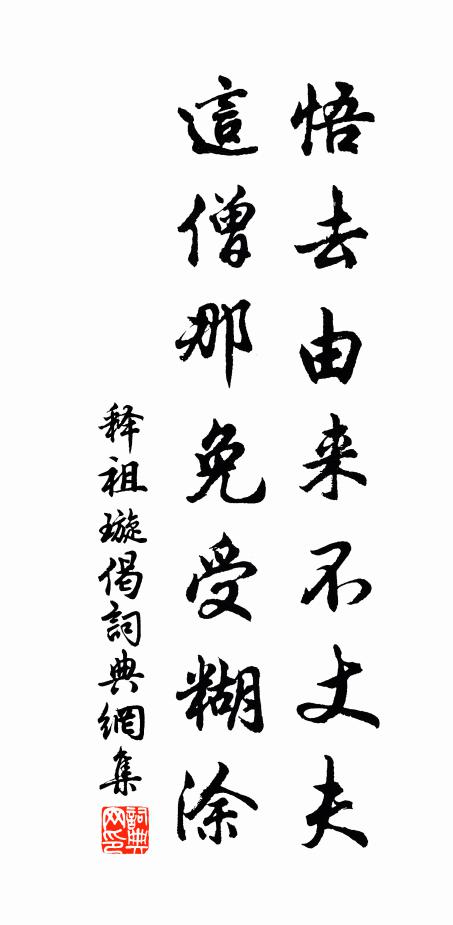 悟去由来不丈夫
這僧那免受糊涂
释祖璇偈詞典網集
詞典网印